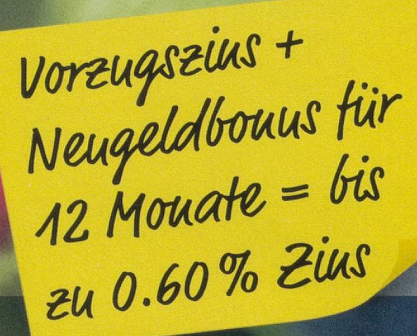 Vorzugszins +
Neugeldbonus für
12 Monate = bis
zu 0.60% Zins